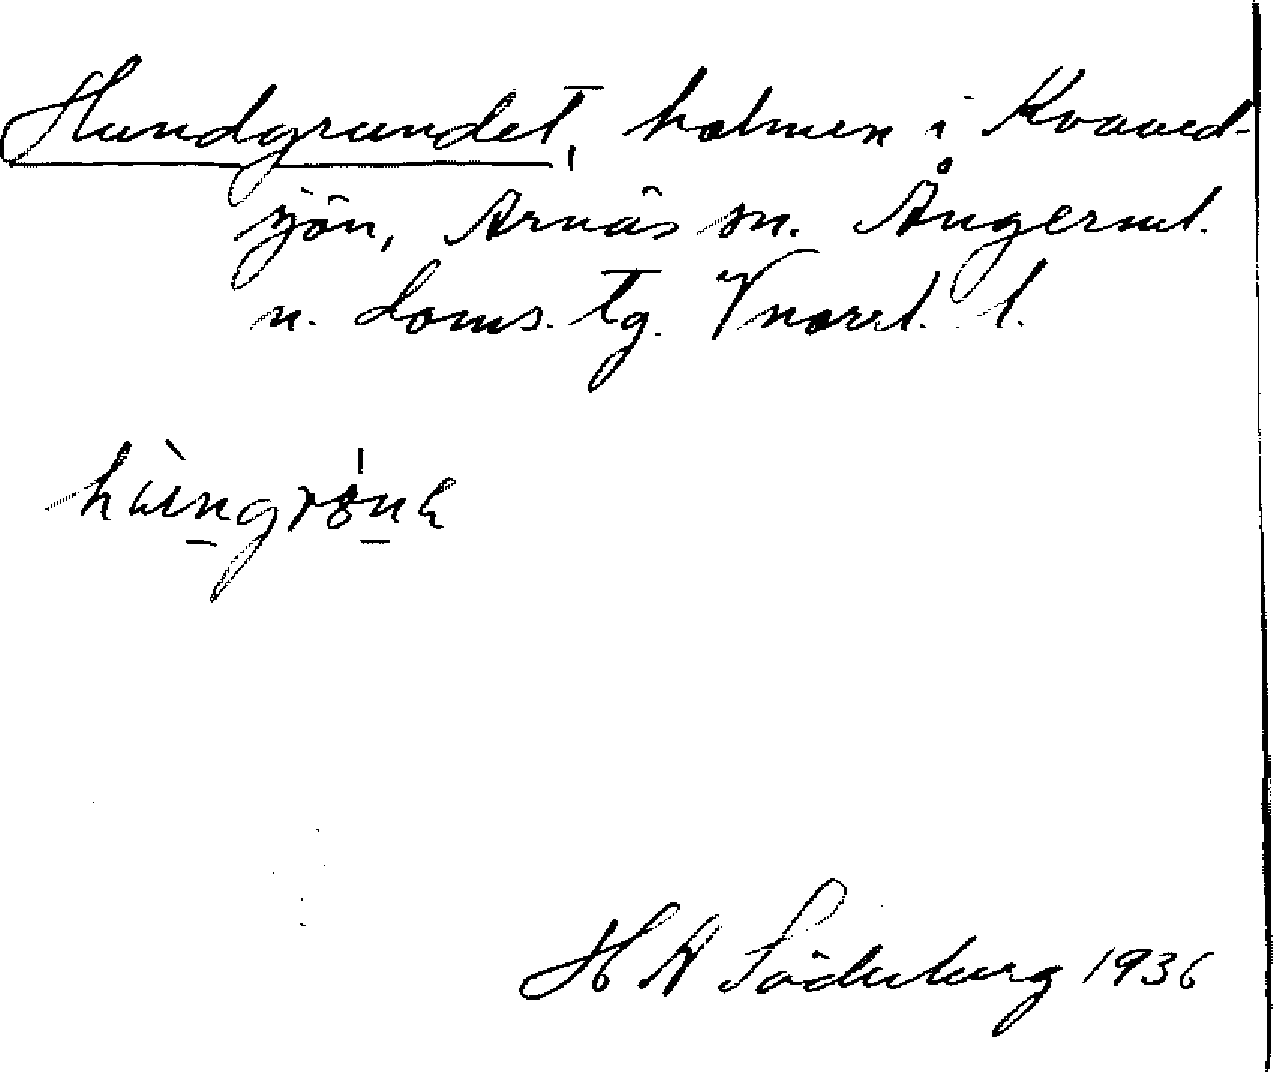 Hundgrundet, holmen i Kvaved-
sjön, Arnäs sn. Ångerml.
n. doms. tg. Vnorrl. l.
hùngrönɐ
H A Söderberg 1936